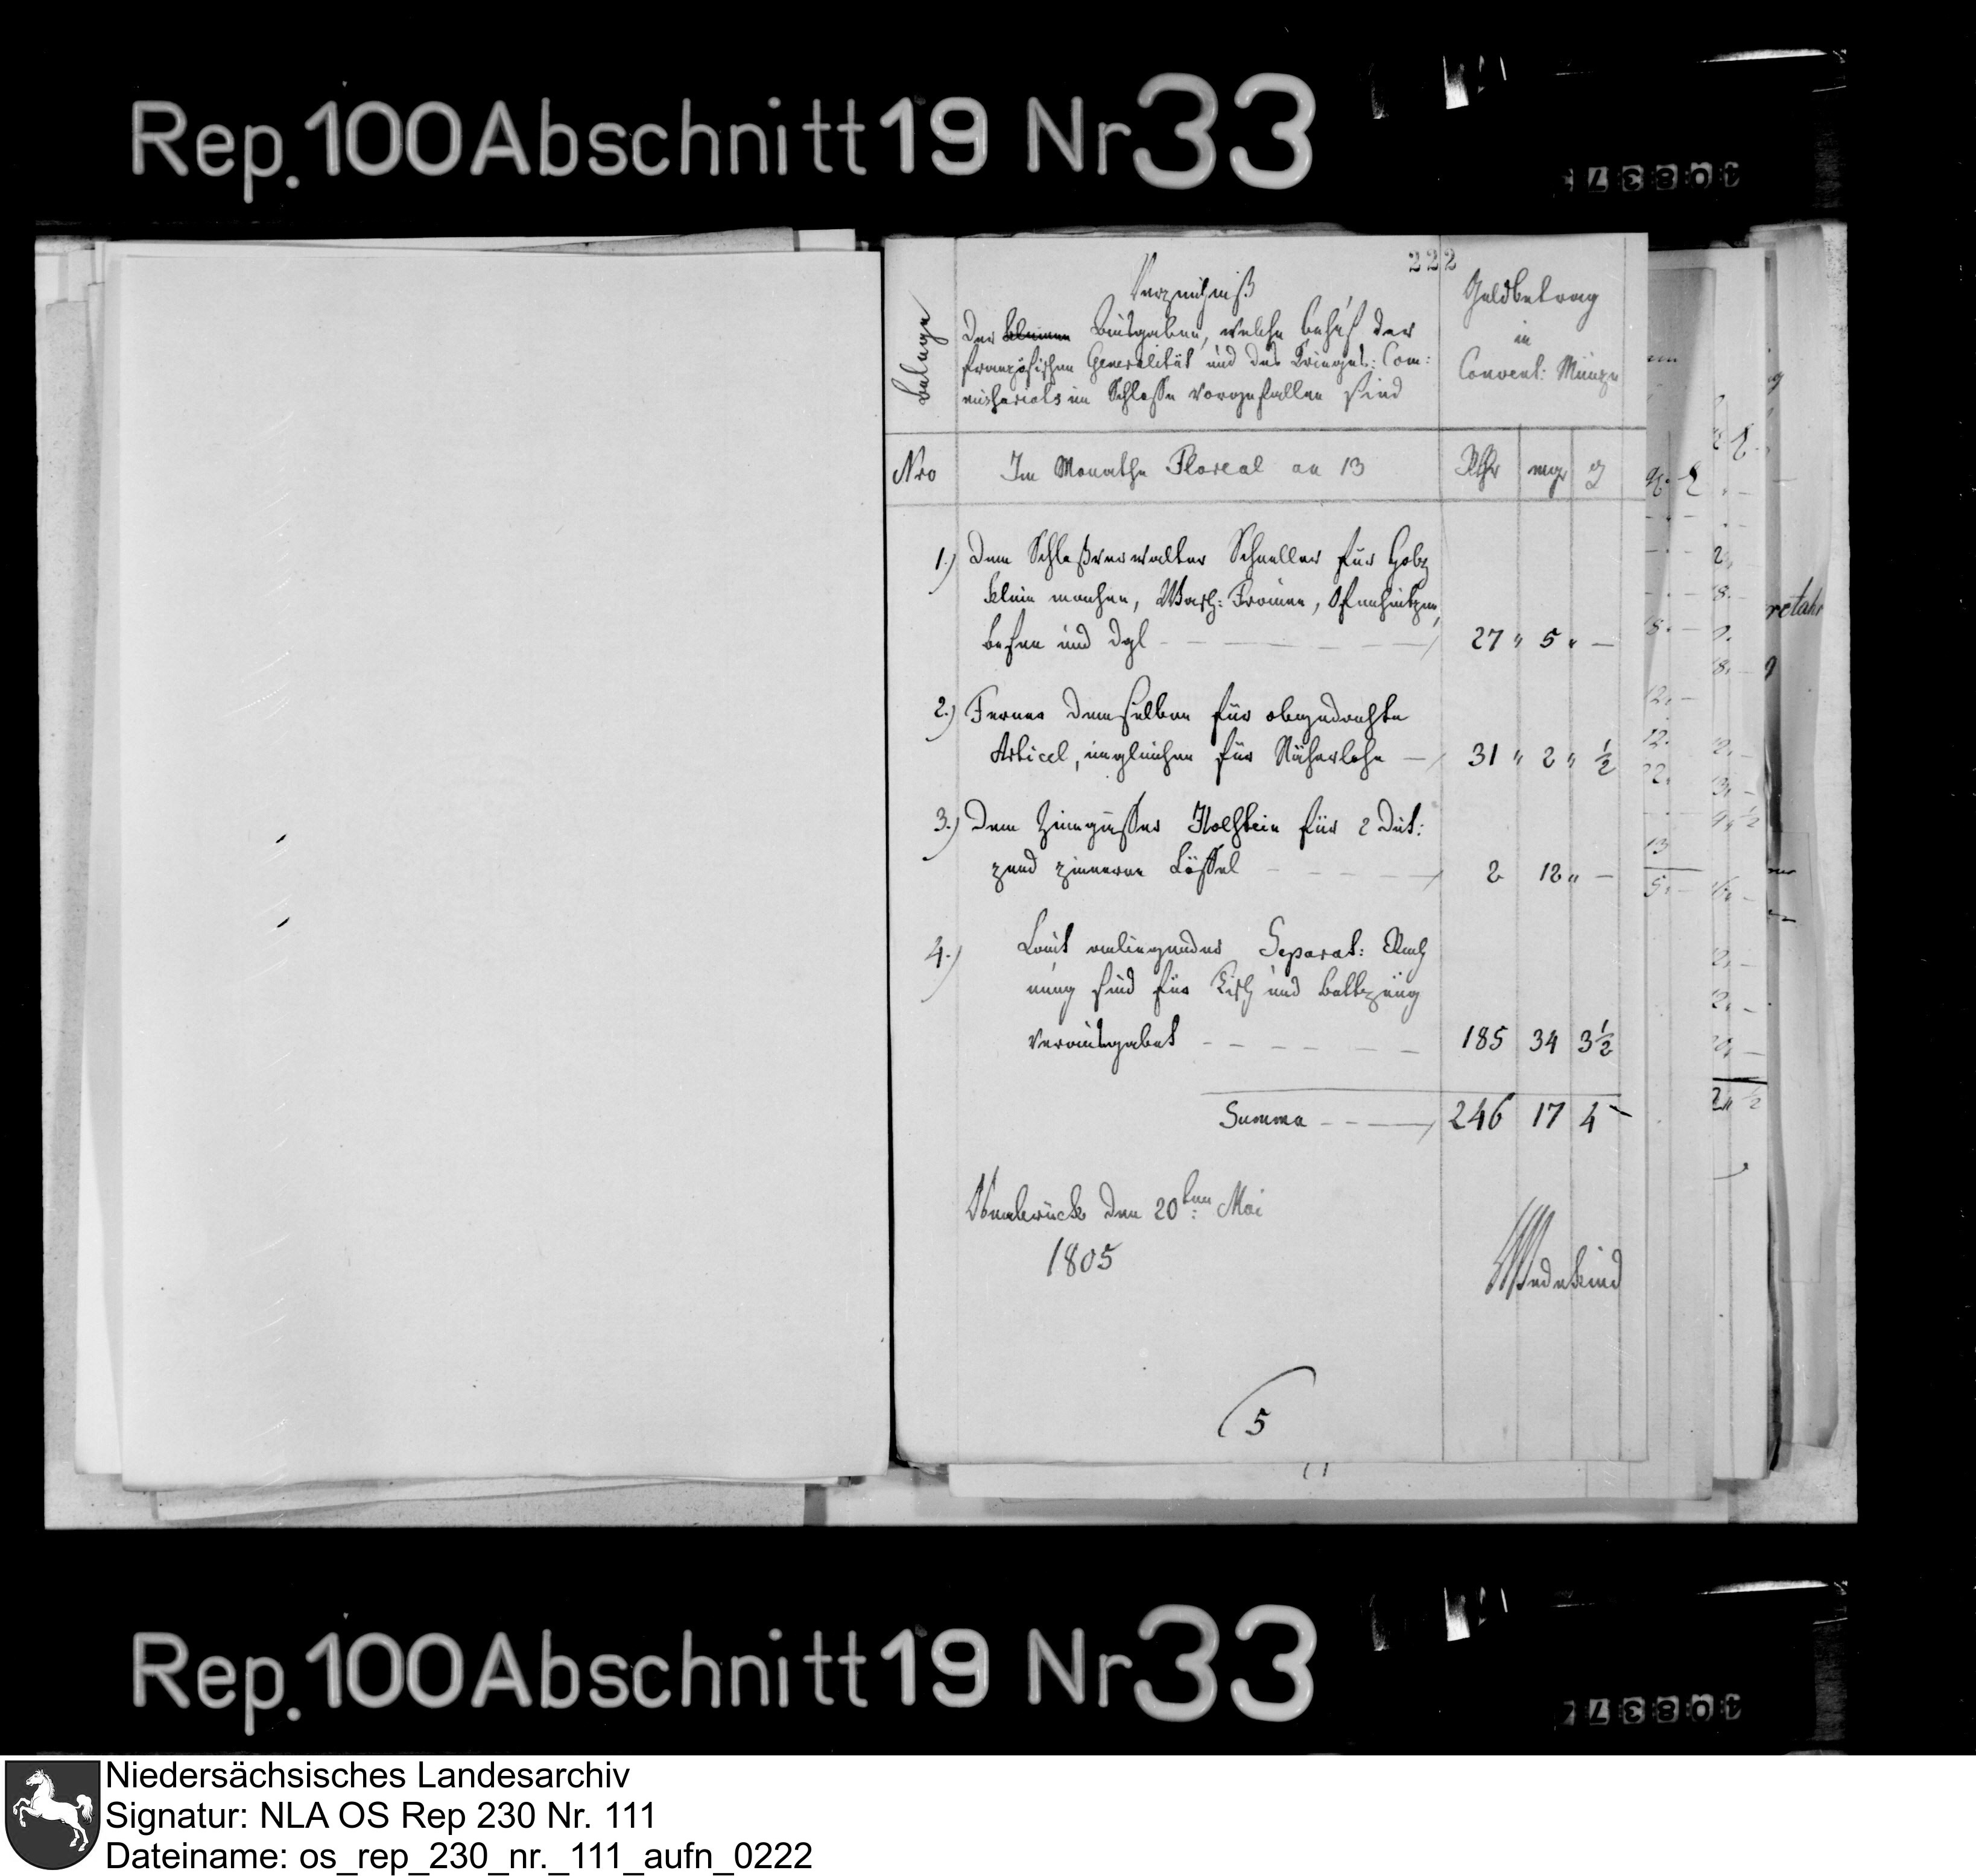 Rep. 100 Abschnitt 19 Nr 33
108375
222
Belage
Verzeichniß
der kleinen Ausgaben, welche behuf der
französischen Generalität und des Kriegs: Com:
missariats im Schlosse vorgefallen sind
Geldbetrag
in
Convent: Münze
Nro
Im Monathe Floreal an 13
Rthr mgr ₰
1.) Dem Schloßverwalter Schneller für Holz
klein machen, Wasch: Frauen, Ofenheitzen,
besen und dgl 27 " 5 " —
2.) Ferner demselben für obgedachte
Articel, ingleichen für Näherlohn — 31 " 2 " ½
3.) Dem Zinngießer Holstein für 2 Dut:
zend zinnerne Löffel 2 12 " —
4.) Laut anliegender Separat: Rech
nung sind für Tisch und Bettzeug
verausgabet 185 34 3½
Summa 246 17 4
Osnabrück den 20ten Mai
1805
Wedekind
5
Rep. 100 Abschnitt 19 Nr 33
Niedersächsisches Landesarchiv
Signatur: NLA OS Rep 230 Nr. 111
Dateiname: os_rep_230_nr._111_aufn_0222